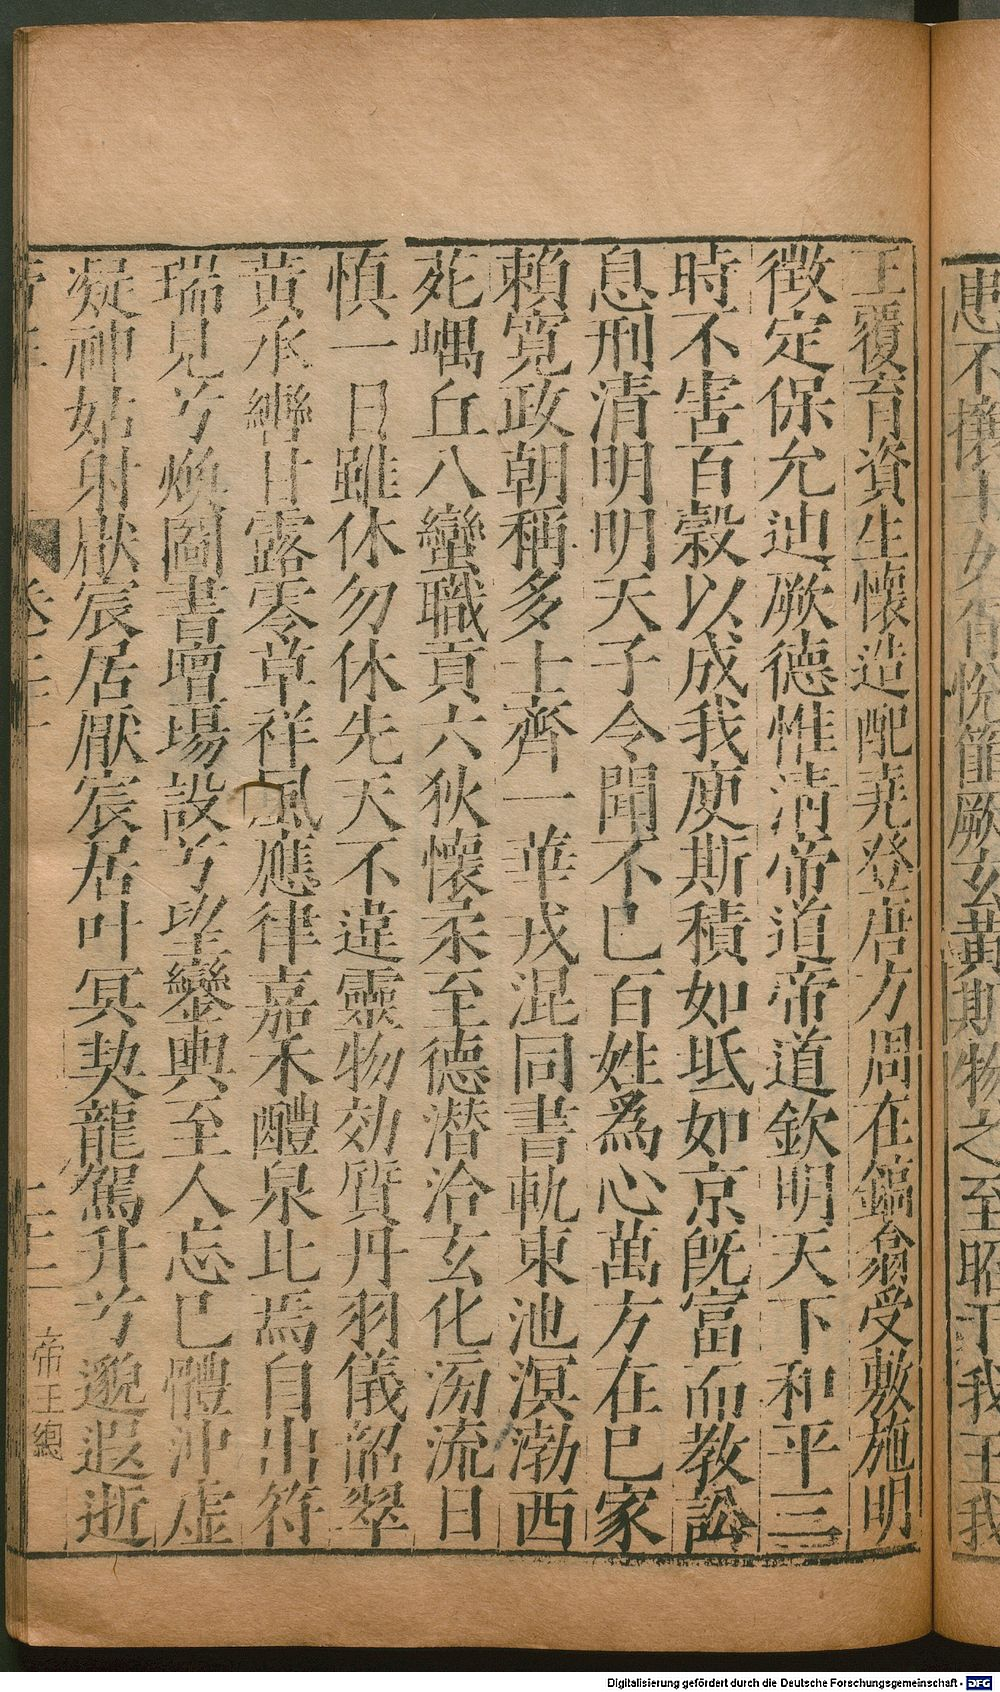 思不懷十久有悅䈪厥玄黄斯物之至昭于我王我
王覆育資生懷造配堯登唐方周在鎬翕受敷施明
徵定保允迪厥德惟清帝道帝道欽明天下和平三
時不害百穀以成我庾斯積如坻如京旣富而教訟
息刑清明明天子令聞不已百姓爲心萬方在已家
賴寛政朝稱多士齊一華戎混同書軌東池溟渤西
菀嵎丘八蠻職貢六狄懷柔至德潛洽玄化汤流日
慎一日雖休勿休先天不違靈物効質丹羽儀韶翠
黄承轡甘露零草祥風應律嘉禾醴泉比焉自出符
瑞見兮煥圖書壇場設兮望鑾輿至人忘已體沖虚
凝神姑射猒宸居厭宸居叶冥契龍駕升兮邈遐逝
卷二十
二十二
帝王總
Digitalisierung gefördert durch die Deutsche Forschungsgemeinschaft - DFG